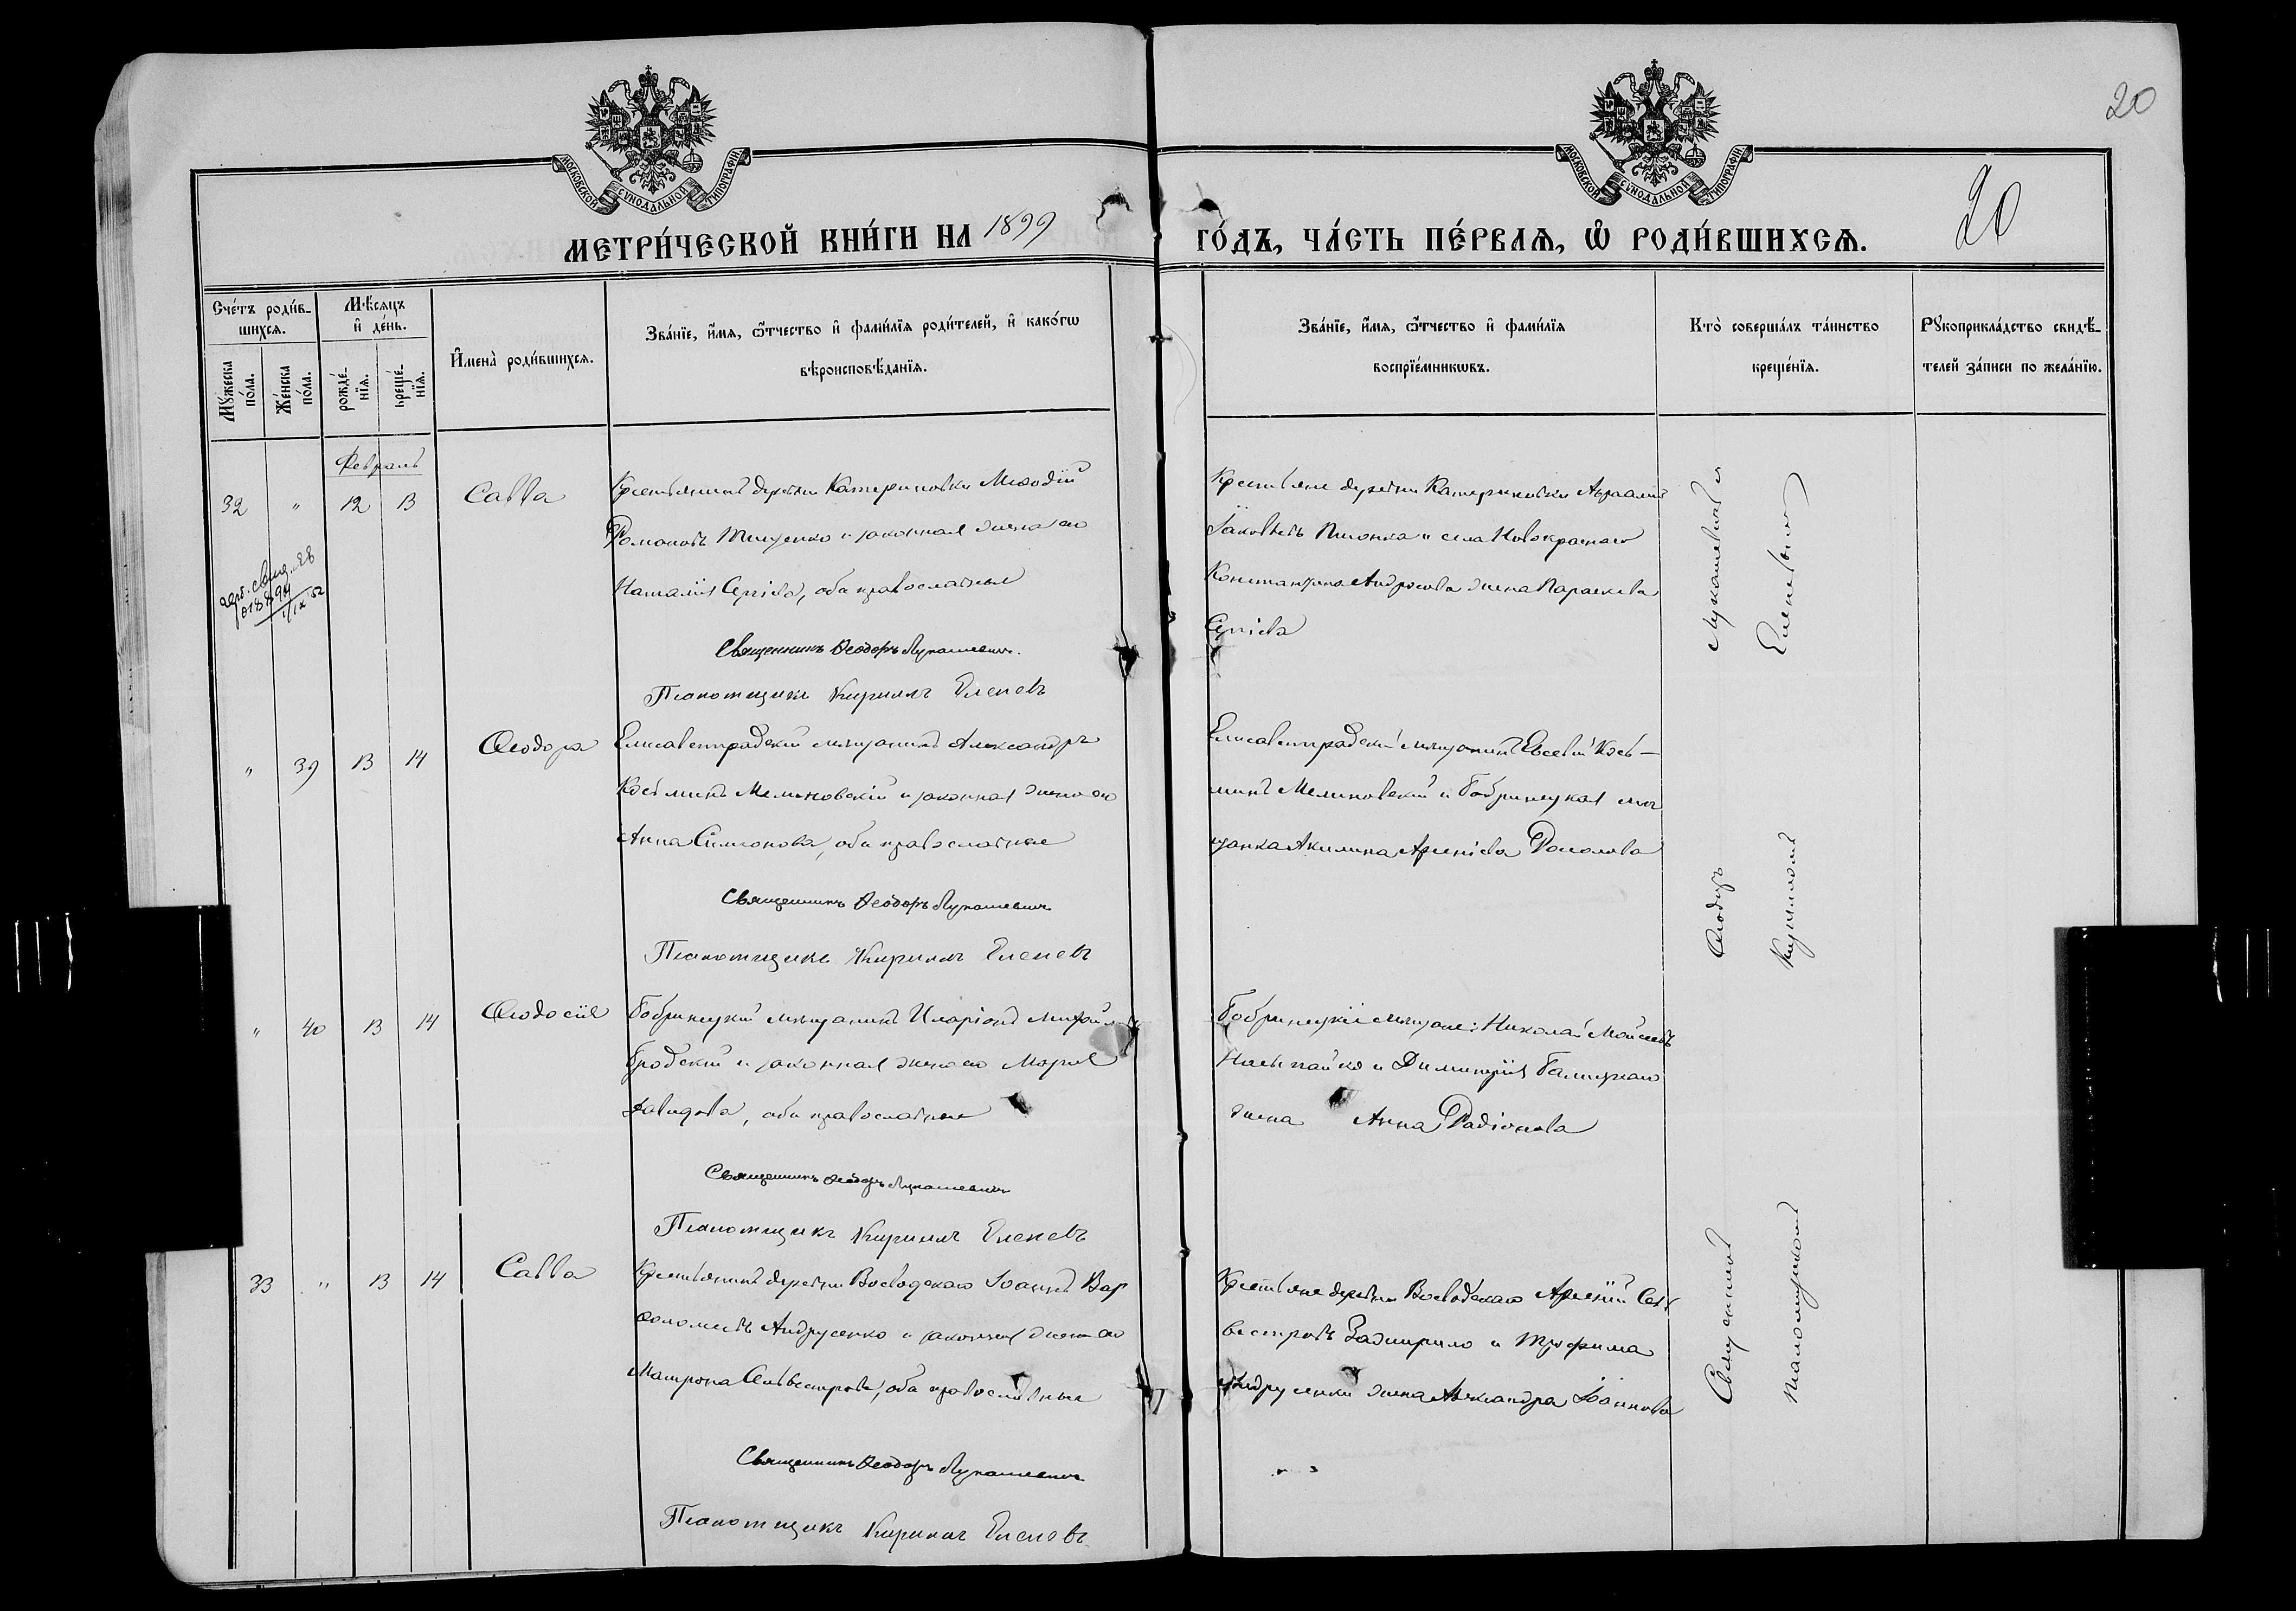 20
МОСКОВСКОЙ СѴНОДАЛЬНОЙ ТИПОГРАФІИ
МОСКОВСКОЙ СѴНОДАЛЬНОЙ ТИПОГРАФІИ
20
МЕТРИ́ЧЕСКОЙ КНИ́ГИ НА 1899 ГО́ДЪ, ЧА́СТЬ ПЕ́РВАЯ, Ѽ РОДИ́ВШИХСЯ.
Сче́тъ роди́в-
шихся.
Мꙋ́жеска
по́ла.
Же́нска
по́ла.
Мѣ́сяцъ
и҆ де́нь.
рожде́-
нїѧ.
креще́-
нїѧ.
И҆мена̀ роди́вшихся.
Зва́нїе, и҆́мя, ѻ҆́тчество и҆ фами́лїя роди́телей, и҆ како́гѡ
вѣроисповѣ́данїя.
Зва́нїе, и҆́мя, ѻ҆́тчество и҆ фами́лїя
воспрїе́мникѡвъ.
Кто̀ соверша́лъ та́инство
креще́нїя.
Рꙋкоприкла́дство свидѣ́-
телей за́писи по жела́нїю.
Февраль
32 " 12 13 Савва
Крестьянинъ деревни Катериновки Меѳодій
Романовъ Тищенко и законная жена его
Наталія Сергіева, оба православные
Священникъ Ѳеодоръ Лукашевич.
Псаломщикъ Кириллъ Еленевъ
Крестьяне деревни Катериновки Авраамій
Іаковлевъ и села Новокраснаго
Константина Андросова жена Параскева
Сергіева
Лукашевичъ и
Еленевымъ
" 39 13 14 Ѳеодора
Елисаветградскій мѣщанинъ Александръ
Косьминъ Мельновскій и законная жена его
Анна Симеонова, оба православные
Священникъ Ѳеодоръ Лукашевич
Псаломщикъ Кириллъ Еленевъ
Елисаветградскій мѣщанинъ Евсевій Кось-
минъ Мелиновскій и Бобринецкая мѣ
щанка Акилина Арсеніева
Ѳеодоръ
Кирилломъ
" 40 13 14 Ѳеодосія
Бобринецкій мѣщанинъ Иларіонъ Михайл
Бродскій и законная жена его Марія
Давидова, оба православные
Священникъ Ѳеодоръ Лукашевич
Псаломщикъ Кириллъ Еленевъ
Бобринецкіе мѣщане: Николай Мойсеевъ
и Димитрія Балицкаго
жена Анна Радіонова
33 " 13 14 Савва
Крестьянинъ деревни Воеводскаго Іоаннъ Вар
ѳоломеевъ Андрусенко и законная жена его
Матрона Сильвестрова, оба православные
Священникъ Ѳеодоръ Лукашевич
Псаломщикъ Кириллъ Еленевъ
Крестьяне деревни Воеводскаго Арсеній Сель
вестровъ Зазимрило и Трофима
Андрусенки жена Александра Іоаннова
Священникъ
псаломщикомъ